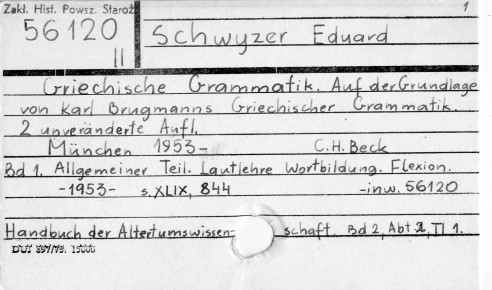 Zakł. Hist. Powsz. Staroż
1
56120
II
Schwyzer Eduard
Griechische Grammatik. Auf der Grundlage
von Karl Brugmanns Griechischer Grammatik.
2 unveränderte Aufl.
München 1953- C.H. Beck
Bd 1. Allgemeiner Teil. Lautlehre Wortbildung. Flexion.
-1953- s. XLIX, 844 -inw. 56120
Handbuch der Altertumswissen- schaft. Bd 2, Abt 1, Tl 1.